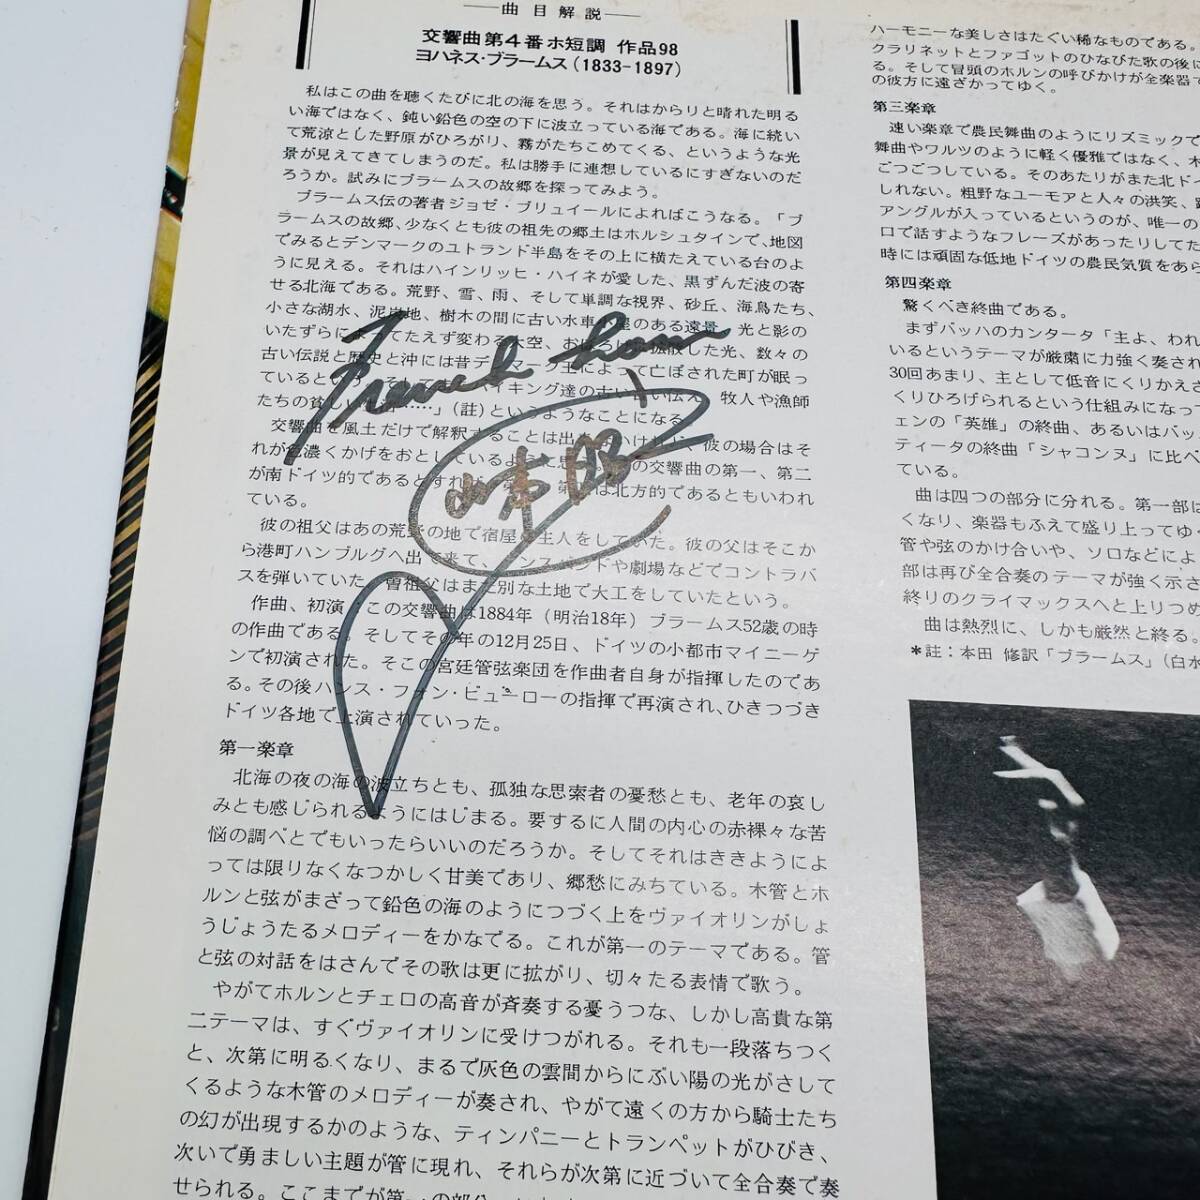 曲目解説
交響曲第4番ホ短調 作品98
ヨハネス・ブラームス(1833-1897)
私はこの曲を聴くたびに北の海を思う。それはからりと晴れた明る
い海ではなく、鈍い鉛色の空の下に波立っている海である。海に続い
て荒涼とした野原がひろがり、霧がたちこめてくる、というような光
景が見えてきてしまうのだ。私は勝手に連想しているにすぎないのだ
ろうか。試みにブラームスの故郷を探ってみよう。
ブラームス伝の著者ジョゼ・ブリュイールによればこうなる。「ブ
ラームスの故郷、少なくとも彼の祖先の郷土はホルシュタインで、地図
でみるとデンマークのユトランド半島をその上に横たえている台のよ
うに見える。それはハインリッヒ・ハイネが愛した、黒ずんだ波の寄
せる北海である。荒野、雪、雨、そして単調な視界、砂丘、海鳥たち、
小さな湖水、泥炭地、樹木の間に古い水車小屋のある遠景、光と影の
いたずらによってたえず変わる大空、おぼろげに拡散した光、数々の
古い伝説と歴史と沖には昔デンマーク王によって亡ぼされた町が眠っ
ているという、そして イキング達の古い言い伝え、牧人や漁師
たちの貧しい ……」(註)というようなことになる。
交響曲を風土だけで解釈することは出 いけれど、彼の場合はそ
れが色濃くかげをおとしているように思 の交響曲の第一、第二
が南ドイツ的であるとすれば、 は北方的であるともいわれ
ている。
彼の祖父はあの荒野の地で宿屋の主人をしていた。彼の父はそこか
ら港町ハンブルグへ出て来て、ダンスバンドや劇場などでコントラバ
スを弾いていた。曾祖父はまた別な土地で大工をしていたという。
作曲、初演 この交響曲は1884年(明治18年)ブラームス52歳の時
の作曲である。そしてその年の12月25日、ドイツの小都市マイニーゲ
ンで初演された。そこの宮廷管弦楽団を作曲者自身が指揮したのであ
る。その後ハンス・フォン・ビューローの指揮で再演され、ひきつづき
ドイツ各地で上演されていった。
第一楽章
北海の夜の海の波立ちとも、孤独な思索者の憂愁とも、老年の哀し
みとも感じられるようにはじまる。要するに人間の内心の赤裸々な苦
悩の調べとでもいったらいいのだろうか。そしてそれはききようによ
っては限りなくなつかしく甘美であり、郷愁にみちている。木管とホ
ルンと弦がまざって鉛色の海のようにつづく上をヴァイオリンがしょ
うじょうたるメロディーをかなでる。これが第一のテーマである。管
と弦の対話をはさんでその歌は更に拡がり、切々たる表情で歌う。
やがてホルンとチェロの高音が斉奏する憂うつな、しかし高貴な第
二テーマは、すぐヴァイオリンに受けつがれる。それも一段落ちつく
と、次第に明るくなり、まるで灰色の雲間からにぶい陽の光がさして
くるような木管のメロディーが奏され、やがて遠くの方から騎士たち
の幻が出現するかのような、ティンパニーとトランペットがひびき、
次いで勇ましい主題が管に現れ、それらが次第に近づいて全合奏で奏
せられる。ここまでが第一の部分
French horn
山本昭一
ハーモニーな美しさはたぐい稀なものである。
クラリネットとファゴットのひなびた歌の後に
る。そして冒頭のホルンの呼びかけが全楽器で
の彼方に遠ざかってゆく。
第三楽章
速い楽章で農民舞曲のようにリズミックで
舞曲やワルツのように軽く優雅ではなく、木
ごつごつしている。そのあたりがまた北ドイ
しれない。粗野なユーモアと人々の洪笑、踊
アングルが入っているというのが、唯一の
ロで話すようなフレーズがあったりしてた
時には頑固な低地ドイツの農民気質をあら
第四楽章
驚くべき終曲である。
まずバッハのカンタータ「主よ、われ
いるというテーマが厳粛に力強く奏され
30回あまり、主として低音にくりかえさ
くりひろげられるという仕組みになって
ェンの「英雄」の終曲、あるいはバッ
ティータの終曲「シャコンヌ」に比べ
ている。
曲は四つの部分に分れる。第一部は
くなり、楽器もふえて盛り上ってゆ
管や弦のかけ合いや、ソロなどによ
部は再び全合奏のテーマが強く示さ
終りのクライマックスへと上りつめ
曲は熱烈に、しかも厳然と終る。
*註：本田 脩訳「ブラームス」(白水